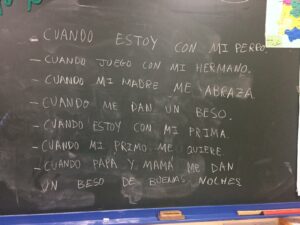 - CUANDO ESTOY CON MI PERRO
- CUANDO JUEGO CON MI HERMANO.
- CUANDO MI MADRE ME ABRAZA.
- CUANDO ME DAN UN BESO.
- CUANDO ESTOY CON MI PRIMA.
- CUANDO MI PRIMO ME QUIERE
- CUANDO PAPA Y MAMÁ ME DAN
UN BESO DE BUENAS NOCHES